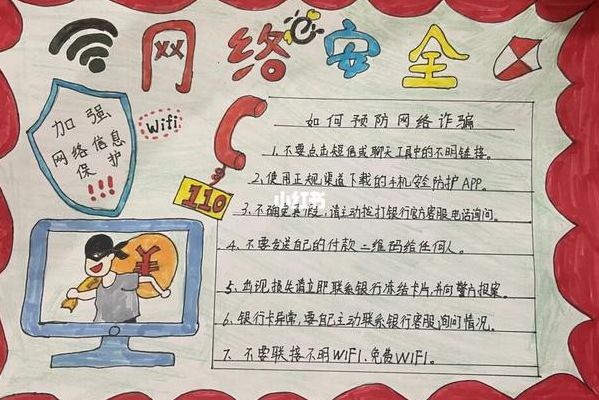 网络安全
加强
网络信息
保护
!!!
Wifi
110
¥
如何预防网络诈骗
1.不要点击短信或聊天工具中的不明链接。
2.使用正规渠道下载的手机安全防护APP。
3.不确定真假,请主动拨打银行官方客服电话询问。
4.不要发送自己的付款二维码给任何人。
5.出现损失请立即联系银行冻结卡片,并向警方报案。
6.银行卡异常,要自己主动联系银行客服询问情况。
7.不要联接不明WIFI、免费WIFI。
小红书